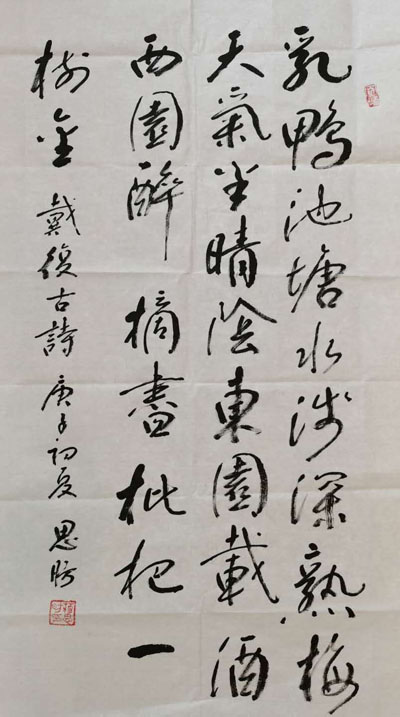 乳鴨池塘水淺深熟梅
天氣半晴陰東園載酒
西園醉摘盡枇杷一
樹金 戴復古詩 庚子初夏 思